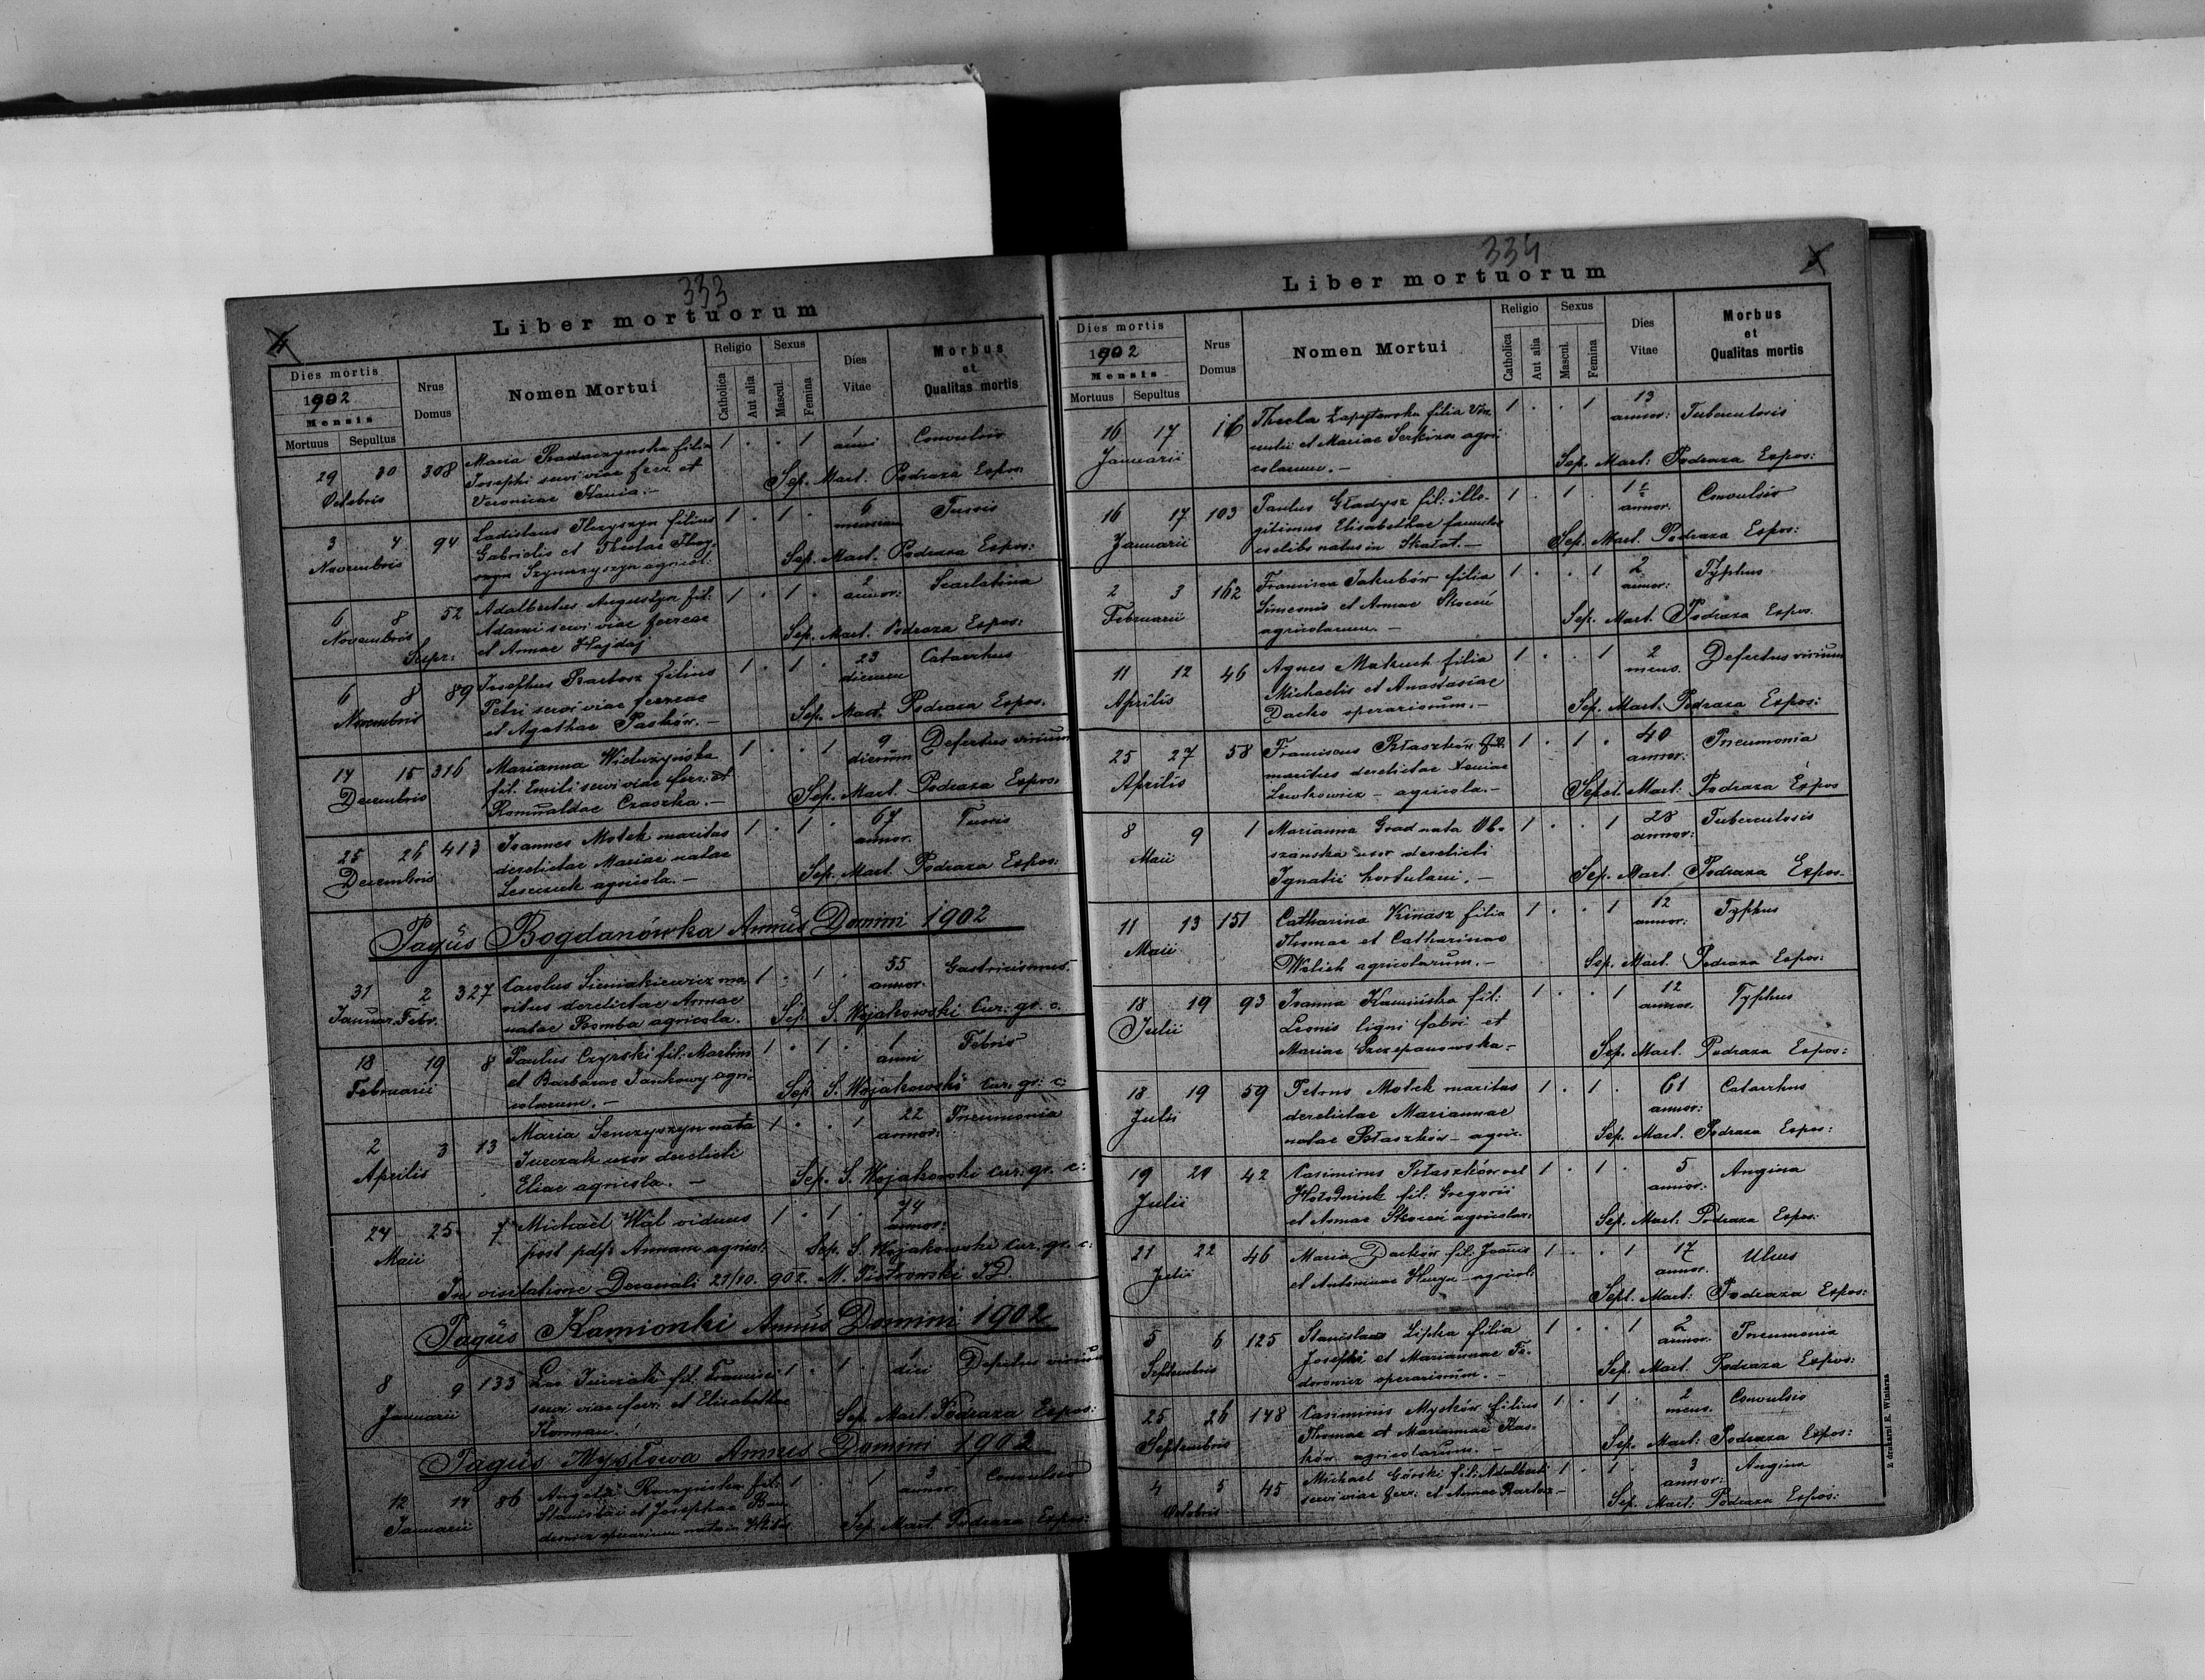 333
4
Liber mortuorum
Dies mortis
1902
Mensis
Mortuus Sepultus
Nrus Domus
Nomen Mortui
Religio
Catholica
Aut alia
Sexus
Mascul.
Femina
Dies Vitae
Morbus et Qualitas mortis
29 30 308 Maria filia 1 . . 1 1 anni Convulsio
Octobris Josephi servi viae ferr. et Sep. Mart. Podraza Expos:
Veronicae Kania.-
3 4 94 Ladislaus filius 1 . 1 . 6 mensium Tussis
Novembris Gabrielis et Theclae Sep. Mart. Podraza Expos:
agricol:
6 8 52 Adalbertus Augustyn fil: 1 . 1 . 2 annor: Scarlatina
Novembris Adami servi viae ferreae Sep. Mart. Podraza Expos:
Supr: et Annae Hajdaj
6 8 89 Josephus Bartosz filius 1 . 1 . 23 dierum Catarrhus
Novembris Petri servi viae ferreae Sep. Mart. Podraza Expos.
et Agathae Paszków.-
14 15 316 Marianna 1 . . 1 9 dierum Defectus virium
Decembris fil. Emili servi viae ferr: et Sep. Mart. Podraza Expos:
Romualdae Czaszka.-
25 26 413 Joannes Motek maritus 1 . 1 . 67 annor. Tussis
Decembris derelictae Mariae natae Sep. Mart. Podraza Expos:
agricola.-
Pagus Bogdanówka Annus Domini 1902
31 2 327 Carolus Sieniakiewicz ma- 1 . 1 . 55 annor. Gastricismus
Januar. Febr. ritus derelictae Annae Sep. S. Wojakowski Cur: gr. c.
natae Bomba agricola.
18 19 8 Paulus Czyrski fil: Martini 1 . 1 . 1 anni Febris
Februarii et Barbarae Jankowy agri- Sep. S. Wojakowski Cur: gr: c:
colarum.-
2 3 13 Maria Senczyszyn nata 1 . . 1 22 annor: Pneumonia
Aprilis Jurczak uxor derelicti Sep. S. Wojakowski Cur: gr. c:
Eliae agricola.-
24 25 7 Michael Wal viduus 1 . 1 . 74 annor:
Maii post pdf: Annam agricol: Sep. S. Wojakowski Cur: gr. c:
In visitatione Decanali 21/10. 902. M. Piotrowski
Pagus Kamionki Annus Domini 1902
8 9 133 Leo Jurczak fil. Francisci 1 . 1 . 1 diei Defectus virium
Januarii servi viae ferr: et Elisabethae Sep. Mart. Podraza Expos:
Korman.
Pagus Mysłowa Annus Domini 1902
12 14 86 Angela fil: 1 . . 1 3 annor: Convulsio
Januarii Stanislai et Josephae Sep. Mart. Podraza Expos:
operarium nata in
334
5
Liber mortuorum
Dies mortis
1902
Mensis
Mortuus Sepultus
Nrus Domus
Nomen Mortui
Religio
Catholica
Aut alia
Sexus
Mascul.
Femina
Dies Vitae
Morbus et Qualitas mortis
16 17 16 Thecla Zapytowska filia Vin- 1 . . 1 13 annor: Tuberculosis
Januarii et Mariae agri- Sep. Mart: Podraza Expos:
colarum.-
16 17 103 Paulus Gładysz fil: ille- 1 . 1 . 1½ annor. Convulsio
Januarii gitimus Elisabethae famulae Sep. Mart. Podraza Expos:
caelibs natus in Skałat.-
2 3 162 Francisca Jakubów filia 1 . . 1 2 annor: Typhus
Februarii Simeonis et Annae Skoceń Sep. Mart. Podraza Expos.
agricolarum.-
11 12 46 Agnes Makuch filia 1 . . 1 2 mens. Defectus virium
Aprilis Michaelis et Anastasiae Sep. Mart. Podraza Expos:
Dacko operariorum.-
25 27 58 Franciscus Błaszków 1 . 1 . 40 annor: Pneumonia
Aprilis maritus derelictae Xeniae Sepel. Mart: Podraza Expos
Lewkowicz - agricola.-
8 9 1 Marianna Grad nata Ol- 1 . . 1 28 annor: Tuberculosis
Maii szańska uxor derelicti Sep. Mart. Podraza Expos.
Ignatii hortulani.-
11 13 151 Catharina Kinasz filia 1 . . 1 12 annor: Typhus
Maii Thomae et Catharinae Sep. Mart. Podraza Expos:
Wolich agricolarum.-
18 19 93 Joanna Kamińska fil: 1 . . 1 12 annor. Typhus
Julii Leonis ligni fabri et Sep. Mart. Podraza Expos:
Mariae Szczepanowska-
18 19 59 Petrus Motek maritus 1 . 1 . 61 annor: Catarrhus
Julii derelictae Mariannae Sep. Mart. Podraza Expos:
natae Błaszków - agric.
19 20 42 Casimirus Błaszków vel 1 . 1 . 5 annor: Angina
Julii Hołodniuk fil: Gregorii Sep. Mart: Podraza Expos:
et Annae Skoceń agricolar:
21 22 46 Maria Daćków fil: Joannis 1 . . 1 17 annor. Ulcus
Julii et Antoninae agricol: Sepl. Mart: Podraza Expos:
5 6 125 Stanislaa Lipka filia 1 . . 1 2 annor. Pneumonia
Septembris Josephi et Mariannae Fe- Sep. Mart. Podraza Expos:
dorowicz operariorum.-
25 26 148 Casimirus Myćków filius 1 . 1 . 2 mens. Convulsio
Septembris Thomae et Mariannae Sep. Mart: Podraza Expos:
agricolarum.-
4 5 45 Michael Górski fil: Adalberti 1 . 1 . 3 annor: Angina
Octobris servi viae ferr: et Annae Bartosz- Sep. Mart: Podraza Expos:
Z drukarni E. Winiarza